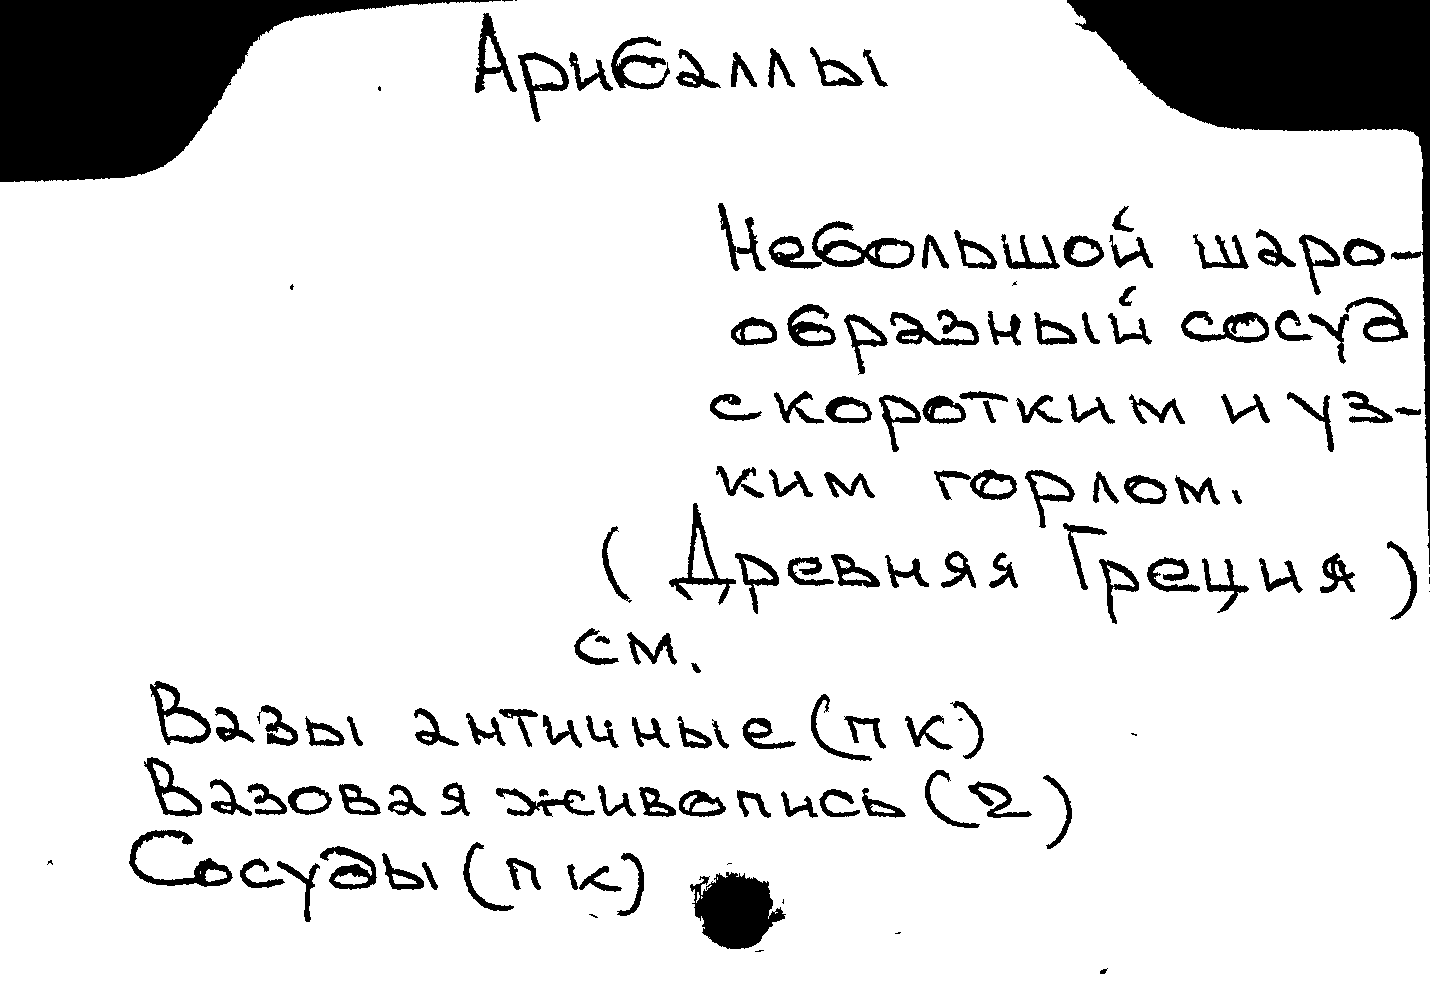 Арибаллы
Небольшой шаро-
образный сосуд
с коротким и уз-
ким горлом.
(Древняя Греция)
см.
Вазы античные (пк)
Вазовая живопись (2)
Сосуды (пк)